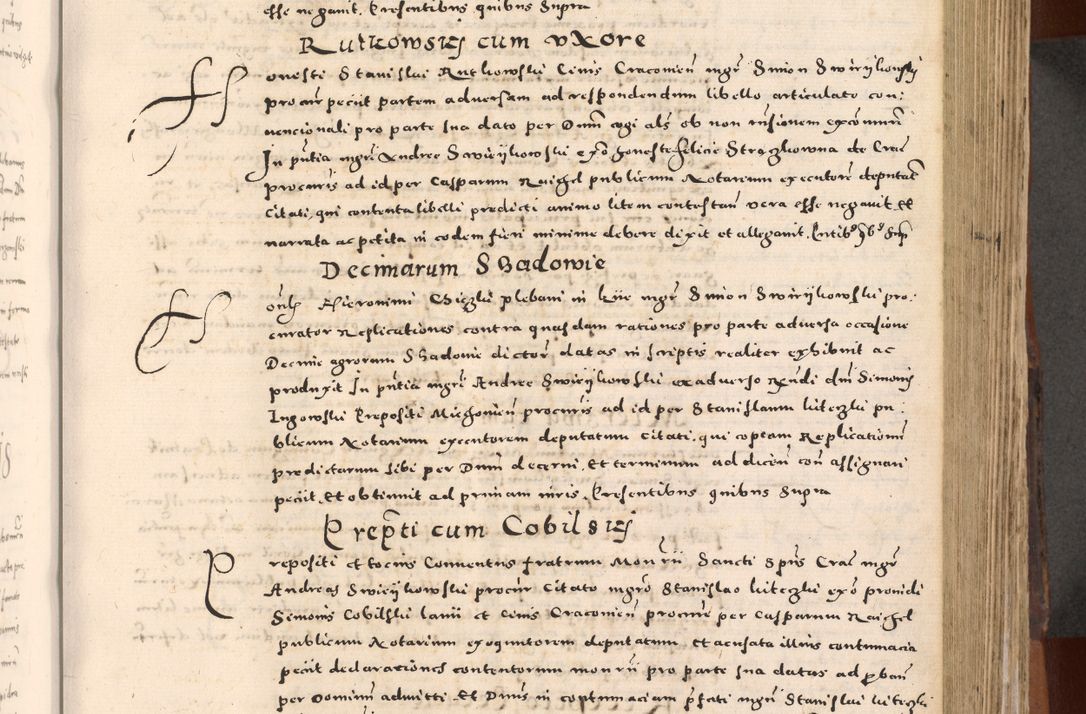 esse negauit. Presentibus quibus Supra
Rutkowskj cum vxore
Honesti Stanislai Rutkowski Ciuis Cracouien mgr Simon Swirijkowskj
procur petiit partem aduersam ad respondendum libello articulato con:
uencionali pro parte sua dato per Dnm cogi als ob non
In pntia mgri Andree Swierijkowski ex o honeste felicie de Crac
procuris ad id per Casparum Raigel publicum Notarium executore deputat
Citati, qui contenta libelli predicti animo litem contestan vera esse negauit et
narrata ac petita in eodem fieri minime debere dixit et allegauit. Pntib9 qb9 Supra
Decimarum Shadowie
Honlis Hieronimi plebani in mgr Simon Swirijkowski pro:
curator Replicationes contra quasdam rationes pro parte aduersa occasione
Decime agrorum Shadowie dictor datas in scriptis realiter exhibuit ac
produxit In pntia mgri Andree Swierijkowski ex aduerso Rndi dni Simonis
Ingowski Prepositi Miechouien procuris ad id per Stanislaum luteczki pu:
blicum Notarium executorem deputatum Citati, qui copiam Replicationu
predictarum sibi per Dnm decerni, et terminum ad dicen con assignari
petiit, et obtinuit ad primam iuris. Presentibus quibus Supra
Prepti cum Cobilskj
Prepositi et tocius Conuentus fratrum Monrij Sancti Spus Crac mgr
Andreas Swierijkowski procur Citato mgro Stanislao luteczki ex o prouidi
Simonis Cobilski lanii et Ciuis Cracouien procure per Casparum Raigel
publicum Notarium exequutorem deputatum, et acusata illius contumacia
petiit declarationes contentorum monrij pro parte sua datas ad pban
per Dominum admitti et Dnus in contumaciam pfati mgri Stanislai luteczki